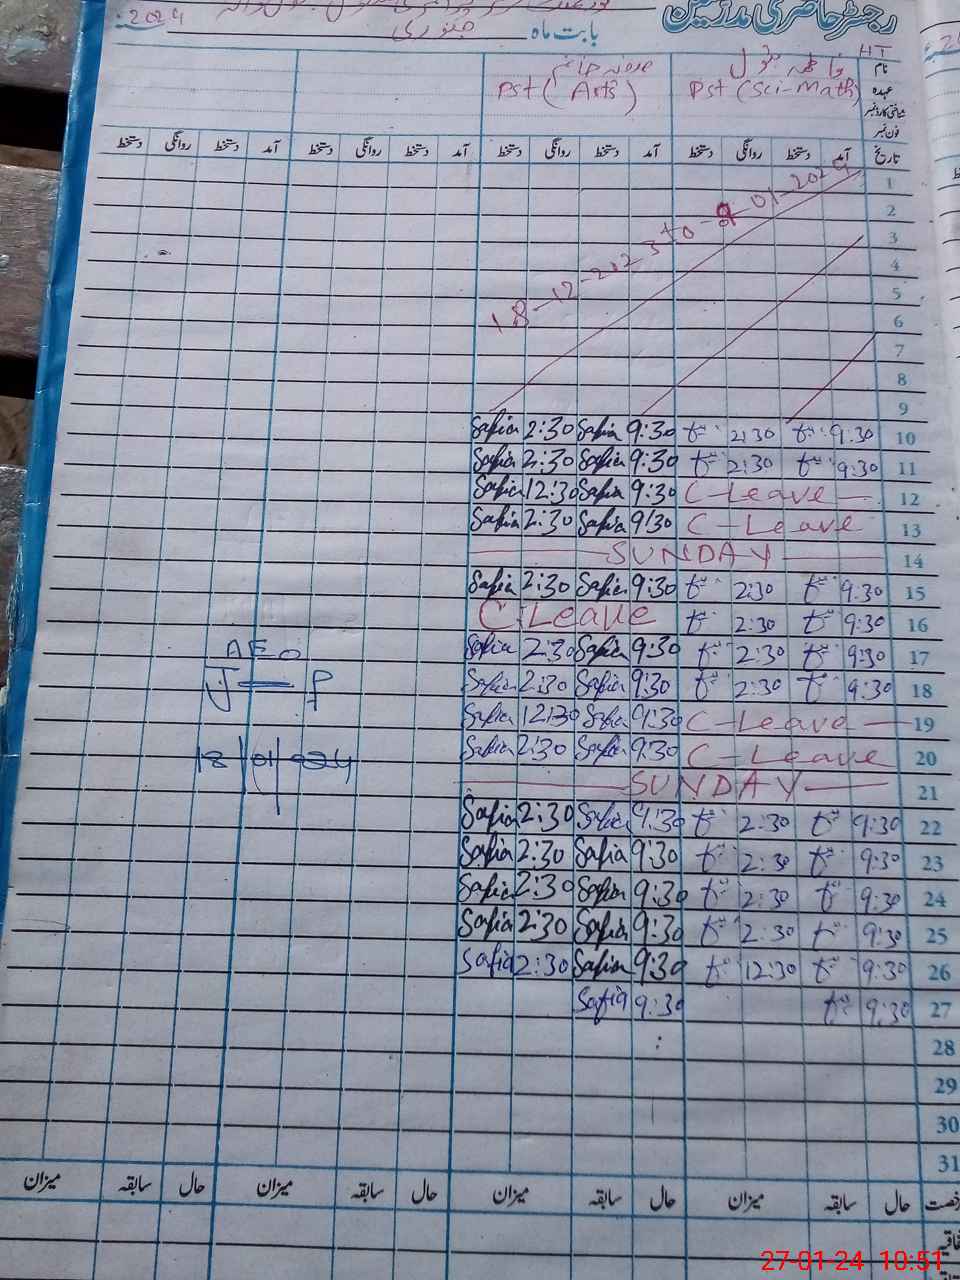 رجسٹر حاضری مدرسین
بابت ماہ جنوری 2024
HT
نام فاطمہ بتول
عہدہ Pst (Sci-Math) Pst (Arts)
شناختی کارڈ نمبر
فون نمبر
تاریخ آمد دستخط روانگی دستخط آمد دستخط روانگی دستخط آمد دستخط روانگی دستخط آمد دستخط روانگی دستخط
1
2
3
4
5
6
7
8
9
18-12-2023 to 9-01-2024
Safia 2:30 Safia 9:30 2:30 9:30 10
Safia 2:30 Safia 9:30 2:30 9:30 11
Safia 12:30 Safia 9:30 C-Leave 12
Safia 2:30 Safia 9:30 C-Leave 13
SUNDAY 14
Safia 2:30 Safia 9:30 2:30 9:30 15
C Leave 2:30 9:30 16
Safia 2:30 Safia 9:30 2:30 9:30 17
Safia 2:30 Safia 9:30 2:30 9:30 18
Safia 12:30 Safia 9:30 C-Leave 19
Safia 2:30 Safia 9:30 C-Leave 20
SUNDAY 21
Safia 2:30 Safia 9:30 2:30 9:30 22
Safia 2:30 Safia 9:30 2:30 9:30 23
Safia 2:30 Safia 9:30 2:30 9:30 24
Safia 2:30 Safia 9:30 2:30 9:30 25
Safia 2:30 Safia 9:30 12:30 9:30 26
Safia 9:30 9:30 27
28
29
30
31
AEO
18/01/024
رخصت حال سابقہ میزان حال سابقہ میزان حال سابقہ میزان حال سابقہ میزان
27-01-24 10:51